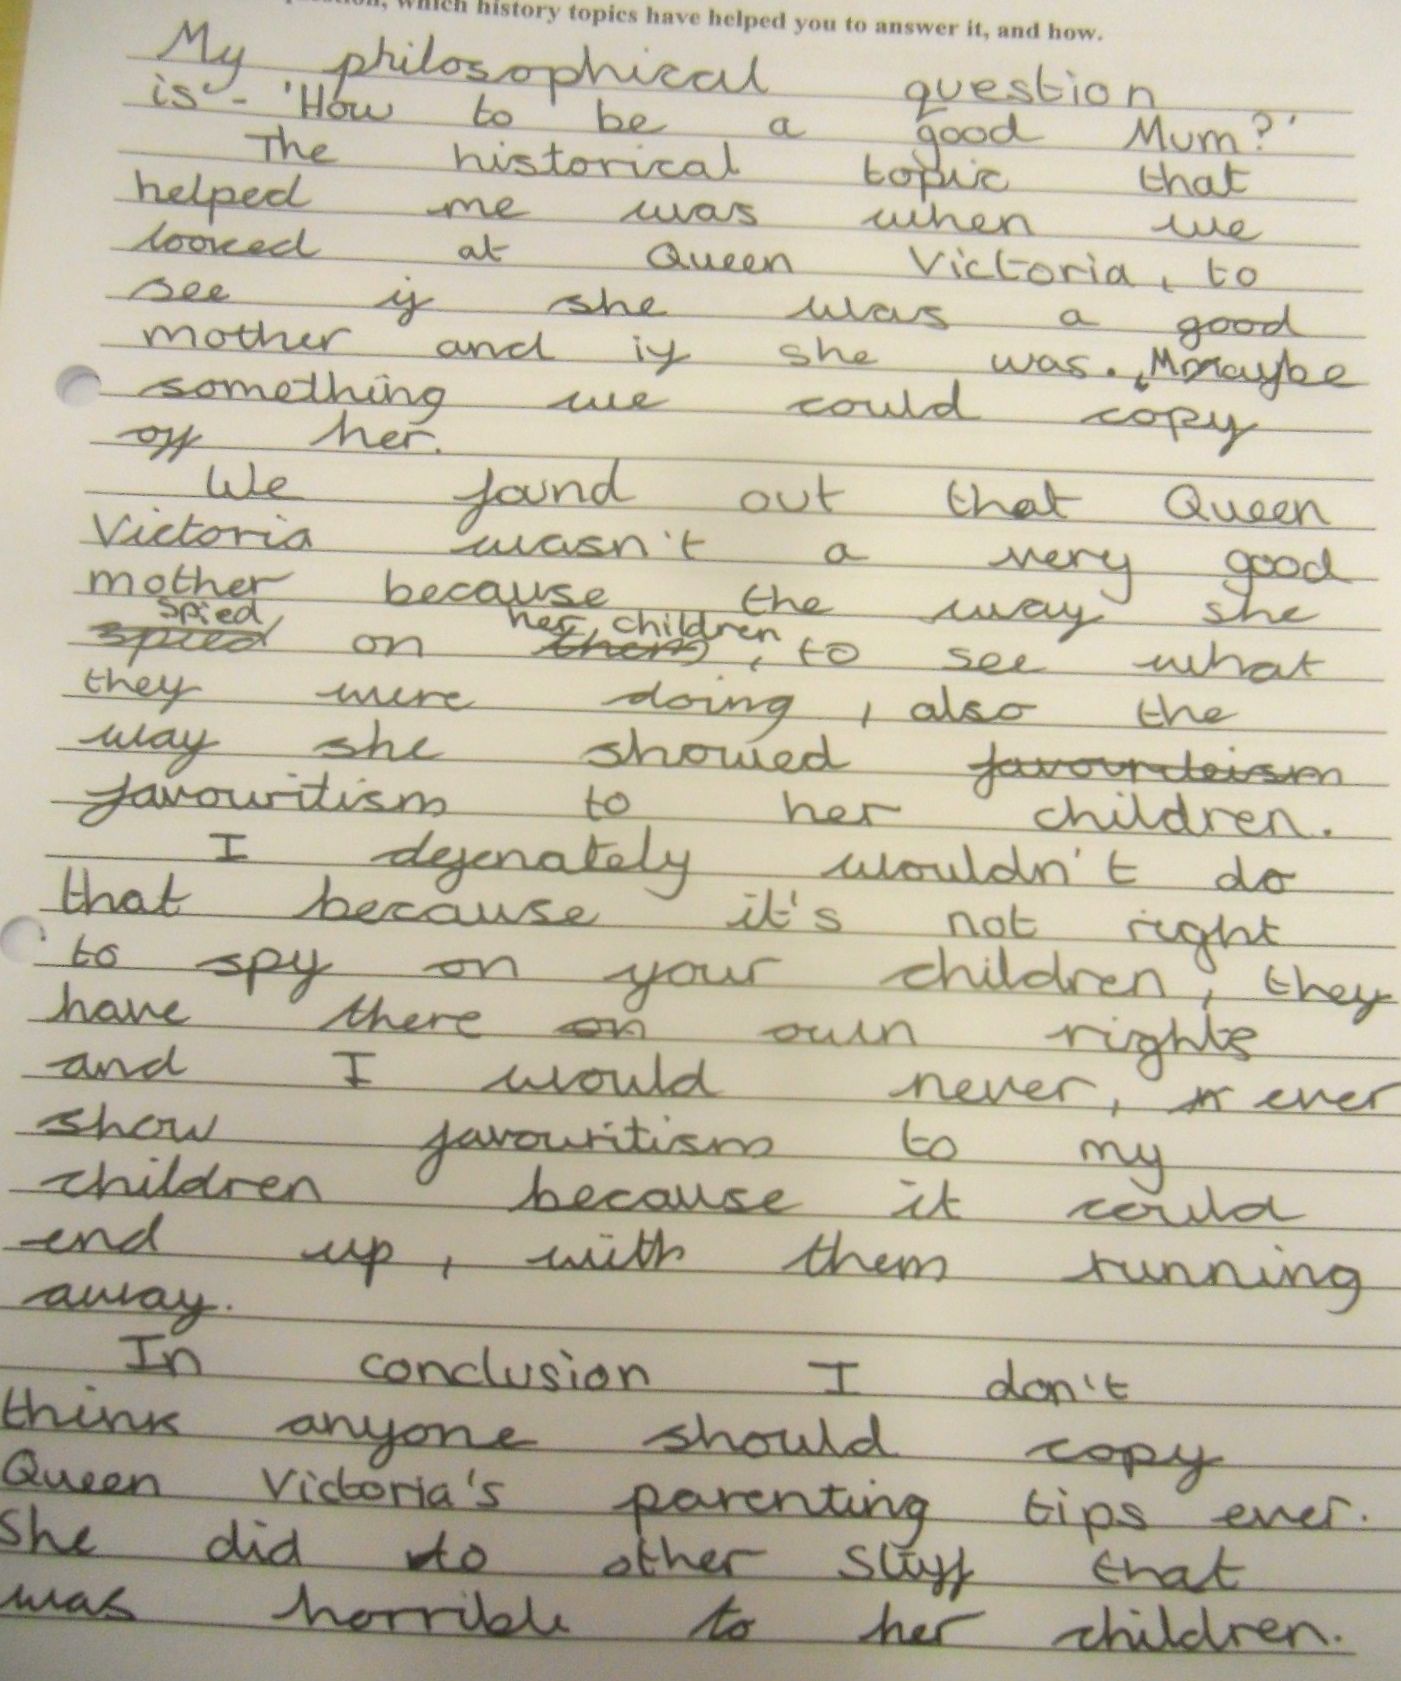 which history topics have helped you to answer it, and how.
My philosophical question
is - 'How to be a good Mum?'
The historical topic that
helped me was when we
looked at Queen Victoria, to
see if she was a good
mother and if she was. Maybe
something we could copy
off her.
We found out that Queen
Victoria wasn't a very good
mother because the way she
spied her children
spied on them, to see what
they were doing, also the
way she showed favourteism
favouritism to her children.
I defenately wouldn't do
that because it's not right
to spy on your children, they
have there on own rights
and I would never, ever
show favouritism to my
children because it could
end up, with them running
away.
In conclusion I don't
think anyone should copy
Queen Victoria's parenting tips ever.
She did do other stuff that
was horrible to her children.